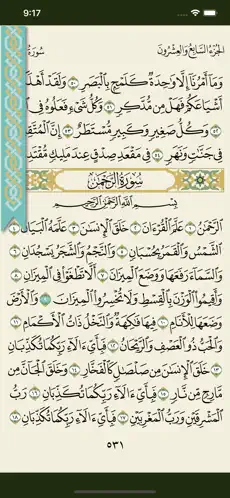 9:17
الجزء السابع والعشرون
سورة
وَمَآ أَمْرُنَآ إِلَّا وَٰحِدَةٌ كَلَمْحٍۭ بِٱلْبَصَرِ ٥٠ وَلَقَدْ أَهْلَ
أَشْيَاعَكُمْ فَهَلْ مِن مُّدَّكِرٍ ٥١ وَكُلُّ شَىْءٍ فَعَلُوهُ فِى
٥٢ وَكُلُّ صَغِيرٍ وَكَبِيرٍ مُّسْتَطَرٌ ٥٣ إِنَّ ٱلْمُتَّقِ
فِى جَنَّٰتٍ وَنَهَرٍ ٥٤ فِى مَقْعَدِ صِدْقٍ عِندَ مَلِيكٍ مُّقْتَدِ
سُورَةُ الرَّحْمَٰن
بِسْمِ ٱللَّهِ ٱلرَّحْمَٰنِ ٱلرَّحِيمِ
ٱلرَّحْمَٰنُ ١ عَلَّمَ ٱلْقُرْءَانَ ٢ خَلَقَ ٱلْإِنسَٰنَ ٣ عَلَّمَهُ ٱلْبَيَانَ ٤
ٱلشَّمْسُ وَٱلْقَمَرُ بِحُسْبَانٍ ٥ وَٱلنَّجْمُ وَٱلشَّجَرُ يَسْجُدَانِ ٦
وَٱلسَّمَآءَ رَفَعَهَا وَوَضَعَ ٱلْمِيزَانَ ٧ أَلَّا تَطْغَوْا۟ فِى ٱلْمِيزَانِ
٨ وَأَقِيمُوا۟ ٱلْوَزْنَ بِٱلْقِسْطِ وَلَا تُخْسِرُوا۟ ٱلْمِيزَانَ ٩ وَٱلْأَرْضَ
وَضَعَهَا لِلْأَنَامِ ١٠ فِيهَا فَٰكِهَةٌ وَٱلنَّخْلُ ذَاتُ ٱلْأَكْمَامِ ١١
وَٱلْحَبُّ ذُو ٱلْعَصْفِ وَٱلرَّيْحَانُ ١٢ فَبِأَىِّ ءَالَآءِ رَبِّكُمَا تُكَذِّبَانِ
١٣ خَلَقَ ٱلْإِنسَٰنَ مِن صَلْصَٰلٍ كَٱلْفَخَّارِ ١٤ وَخَلَقَ ٱلْجَآنَّ مِن
مَّارِجٍ مِّن نَّارٍ ١٥ فَبِأَىِّ ءَالَآءِ رَبِّكُمَا تُكَذِّبَانِ ١٦ رَبُّ
ٱلْمَشْرِقَيْنِ وَرَبُّ ٱلْمَغْرِبَيْنِ ١٧ فَبِأَىِّ ءَالَآءِ رَبِّكُمَا تُكَذِّبَانِ ١٨
٥٣١